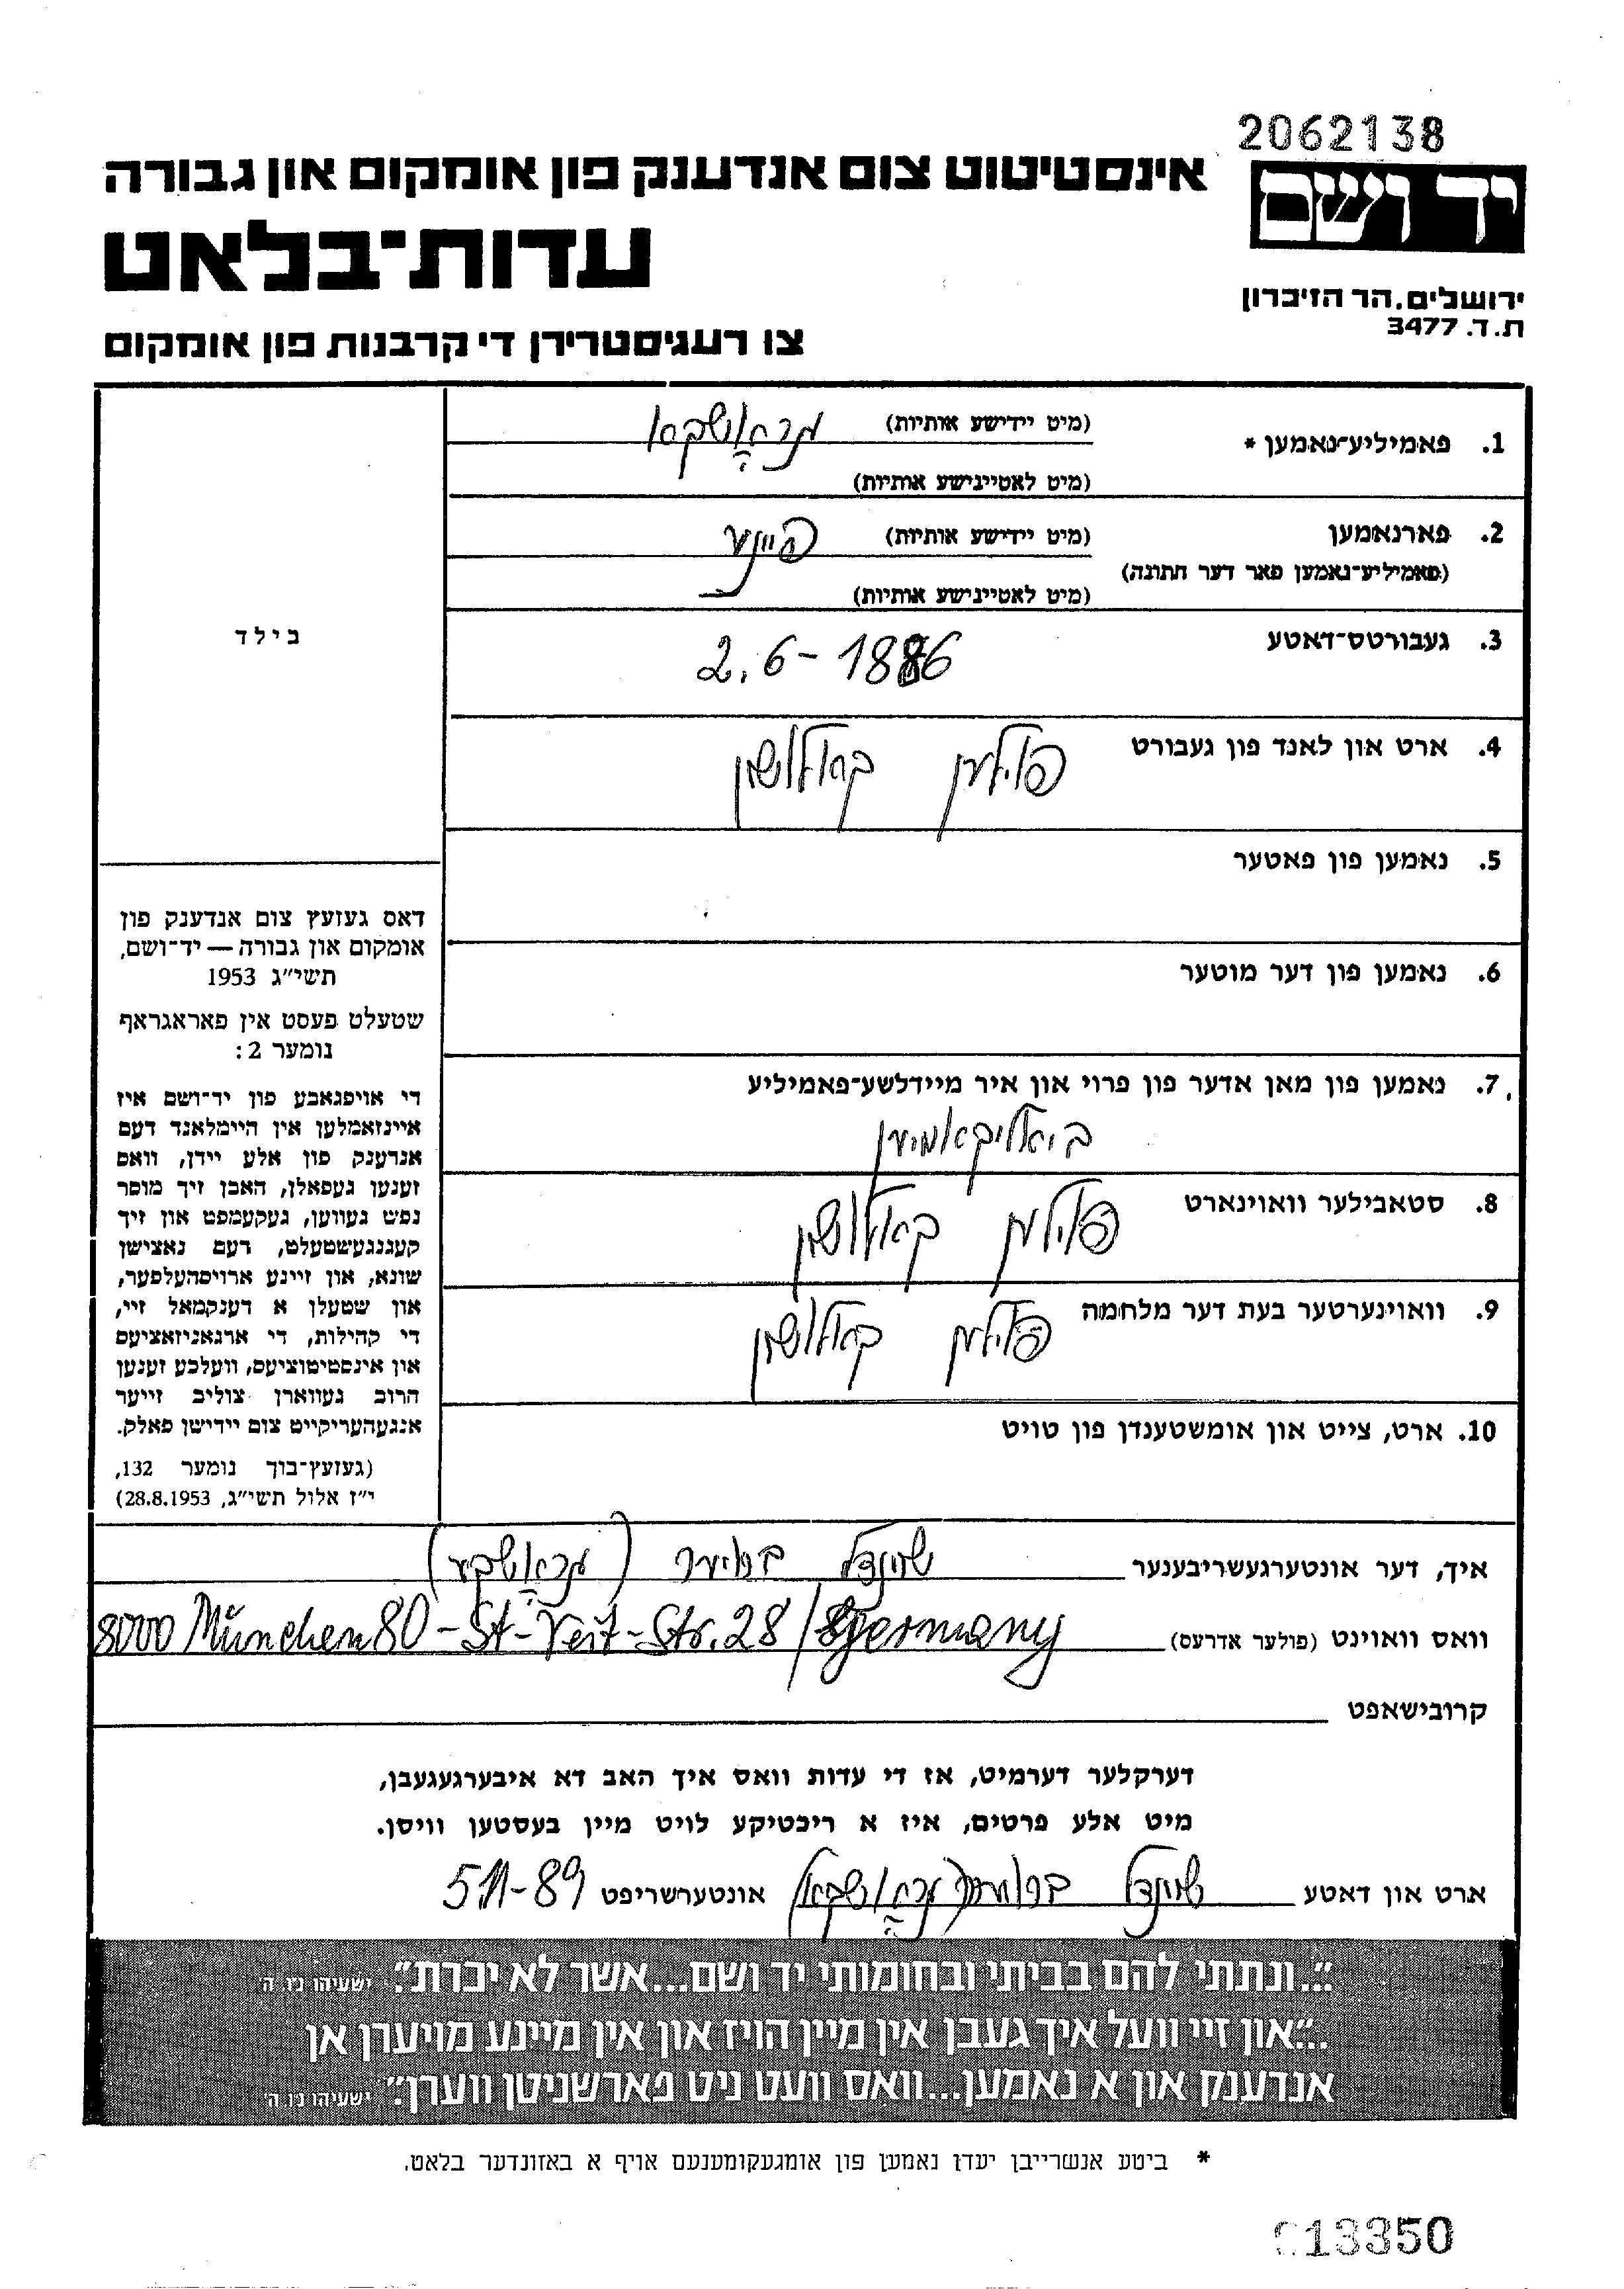 2062138
יד ושם
אינסטיטוט צום אנדענק פון אומקום און גבורה
עדות־בלאט
ירושלים. הר הזיכרון
ת.ד. 3477
צו רעגיסטרירן די קרבנות פון אומקום
1. פאמיליע־נאמען * (מיט יידישע אותיות)
(מיט לאטיינישע אותיות)
2. פארנאמען (מיט יידישע אותיות)
(פאמיליע־נאמען פאר דער חתונה)
(מיט לאטיינישע אותיות)
בילד
3. געבורטס־דאטע 2.6-1886
4. ארט און לאנד פון געבורט פוילען
5. נאמען פון פאטער
6. נאמען פון דער מוטער
7. נאמען פון מאן אדער פון פרוי און איר מיידלשע־פאמיליע
8. סטאבילער וואוינארט פוילען
9. וואוינערטער בעת דער מלחמה פוילען
10. ארט, צייט און אומשטענדן פון טויט
דאס געזעץ צום אנדענק פון
אומקום און גבורה — יד־ושם,
תשי״ג 1953
שטעלט פעסט אין פאראגראף
נומער 2:
די אויפגאבע פון יד־ושם איז
איינזאמלען אין היימלאנד דעם
אנדענק פון אלע יידן, וואס
זענען געפאלן, האבן זיך מוסר
נפש געווען, געקעמפט און זיך
קעגנגעשטעלט, דעם נאצישן
שונא, און זיינע ארויסהעלפער,
און שטעלן א דענקמאל זיי,
די קהילות, די ארגאניזאציעס
און אינסטיטוציעס, וועלכע זענען
חרוב געווארן צוליב זייער
אנגעהעריקייט צום יידישן פאלק.
(געזעץ־בוך נומער 132,
י״ז אלול תשי״ג, 28.8.1953)
איך, דער אונטערגעשריבענער שיינדל
וואס וואוינט (פולער אדרעס) 8000 München 80 - St-Veit-Str. 28 / Germany
קרובישאפט
דערקלער דערמיט, אז די עדות וואס איך האב דא איבערגעגעבן,
מיט אלע פרטים, איז א ריכטיקע לויט מיין בעסטען וויסן.
ארט און דאטע שיינדל אונטערשריפט 5.11-89
"...ונתתי להם בביתי ובחומותי יד ושם...אשר לא יכרת". ישעיהו נ״ו, ה׳
"...און זיי וועל איך געבן אין מיין הויז און אין מיינע מויערן אן
אנדענק און א נאמען...וואס וועט ניט פארשניטן ווערן." ישעיהו נ״ו ה׳
* ביטע אנשרייבן יעדן נאמען פון אומגעקומענעם אויף א באזונדער בלאט.
13350